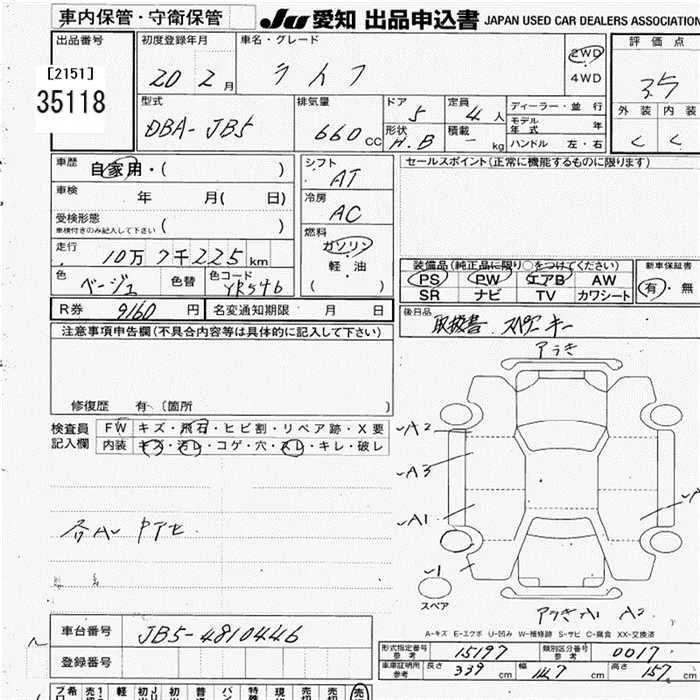 車内保管・守衛保管
JU 愛知 出品申込書 JAPAN USED CAR DEALERS ASSOCIATION
出品番号 初度登録年月 車名・グレード 評価点
[2151]
35118
20 2月 ライフ 2WD 4WD 3.5
型式 排気量 ドア 定員 ディーラー・並行 外装 内装
DBA-JB5 660cc 5 4人 モデル年式 年
形状 H.B 積載 - kg ハンドル 左・右
C C
車歴 自家用・( ) シフト AT セールスポイント(正常に機能するものに限ります)
車検 年 月( 日) 冷房 AC
受検形態 車検付きのみ記入して下さい ( ) 燃料 ガソリン 軽・油 ( )
走行 10万7千225km
装備品(純正品に限り○をつけてください) 新車保証書
色 ベージュ 色替 色コード YR546
PS PW エアB AW 有・無
SR ナビ TV カワシート
R券 9160円 名変通知期限 月 日
後日品 取扱書 スペアキー
注意事項申告欄(不具合内容等は具体的に記入して下さい)
修復歴 有・(箇所 )
検査員記入欄 FW キズ・飛石・ヒビ割・リペア跡・X要
内装 キズ・汚レ・コゲ・穴・スレ・キレ・破レ
A2
A3
A1
スペア
A1 A2
A-キズ E-エクボ U-凹み W-補修跡 S-サビ C-腐食 XX-交換済
車台番号 JB5-4810446
登録番号
形式指定番号 参考 15197 類別区分番号 参考 0017
車庫証明用 参考 長さ 339cm 幅 147cm 高さ 157cm